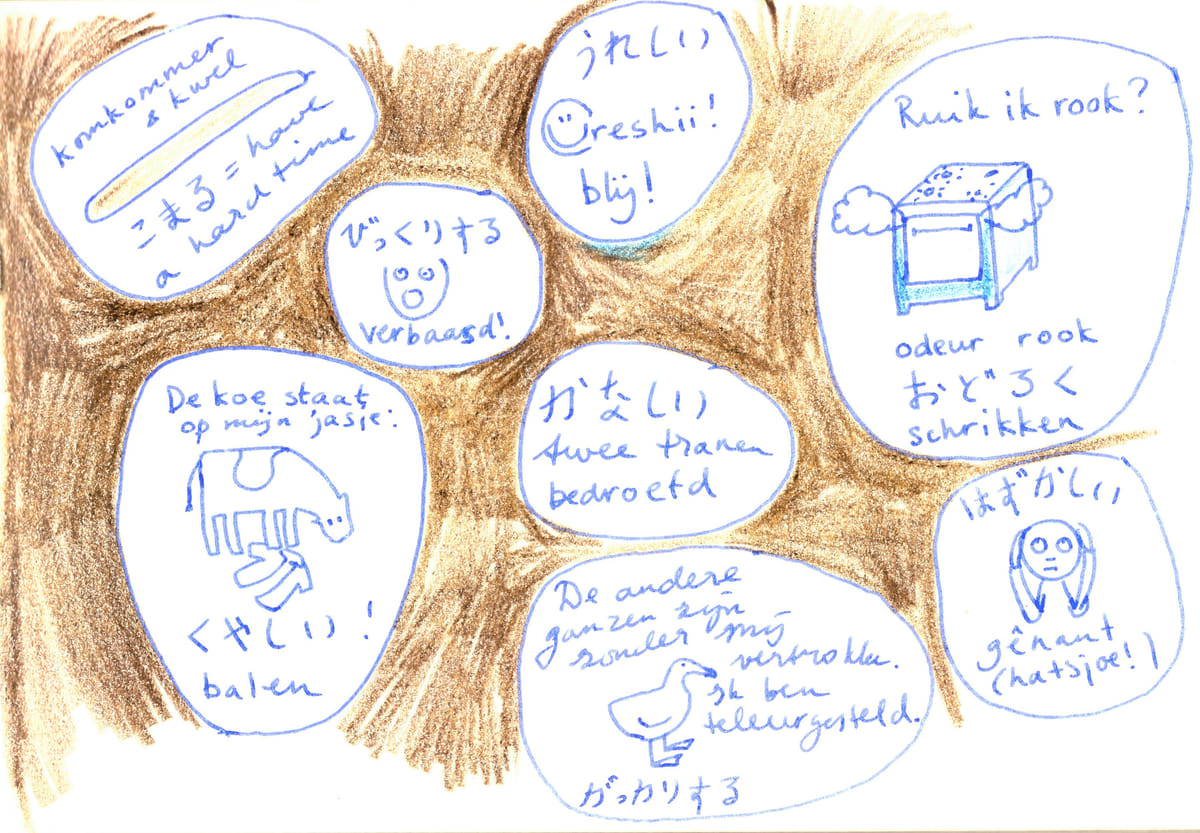 komkommer
& kwel
こまる = have
a hard time
うれしい
Ureshii!
blij!
Ruik ik rook?
odeur rook
おどろく
schrikken
びっくりする
verbaasd!
De koe staat
op mijn 'jasje:
くやしい!
balen
かなしい
twee tranen
bedroefd
はずかしい
gênant
(hatsjoe!)
De andere
ganzen zijn
zonder mij
vertrokken.
Ik ben
teleurgesteld.
がっかりする